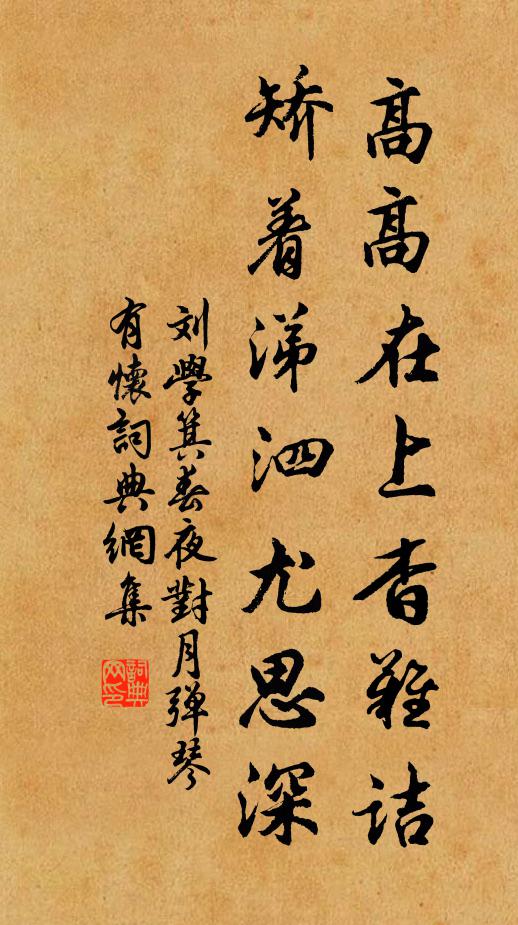 高高在上杳難诘
矫着涕泗尤思深
刘學箕春夜對月弹琴
有懷詞典網集
詞典网印